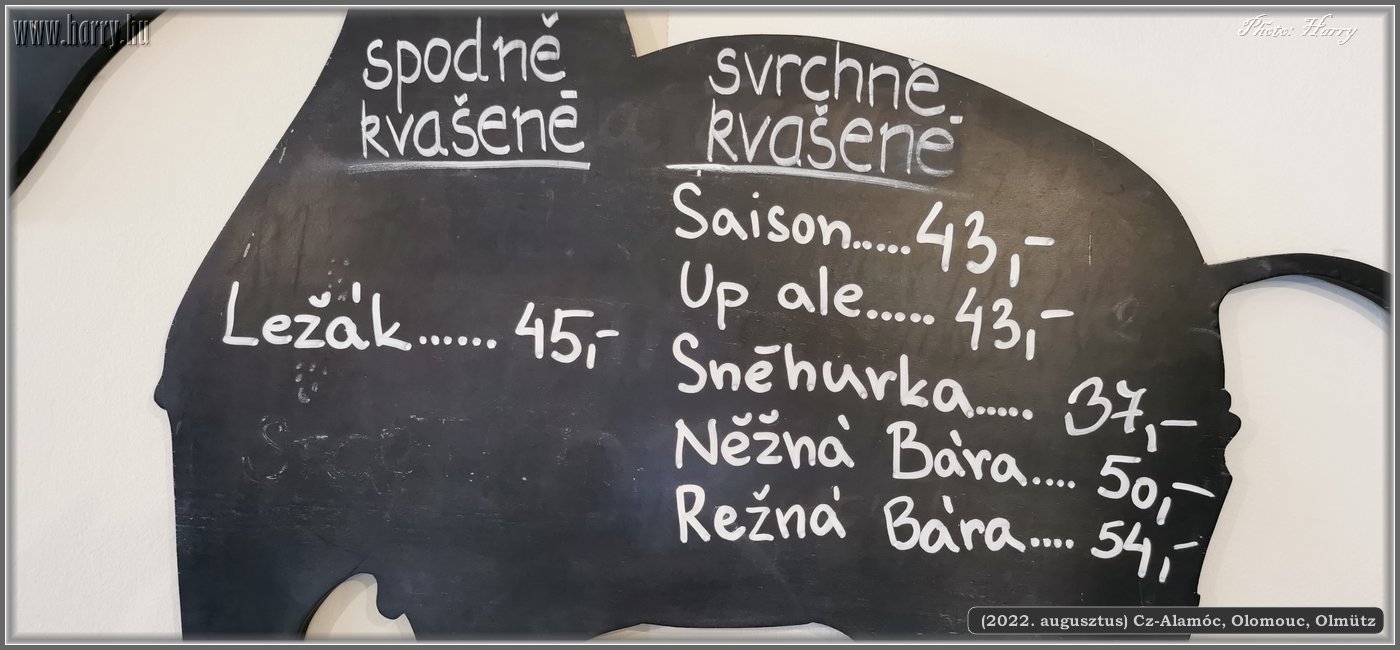 www.harry.hu
Photo: Harry
spodně
kvašené
Ležák...... 45,-
svrchně
kvašené
Saison.....43,-
Up ale..... 43,-
Sněhurka..... 37,-
Něžná Bára.... 50,-
Režná Bára.... 54,-
(2022. augusztus) Cz-Alamóc, Olomouc, Olmütz